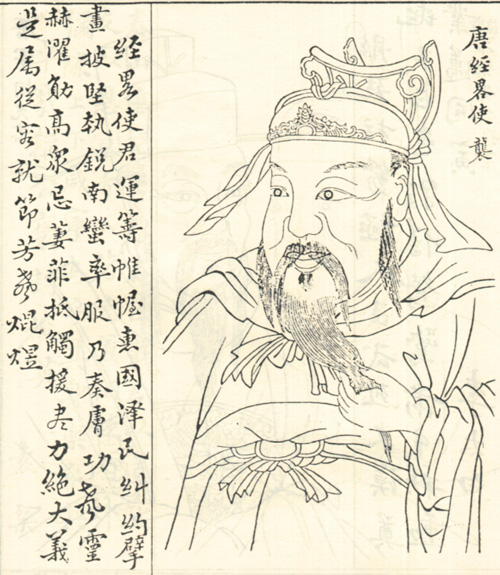 唐經畧使 龔
經畧使君運籌帷幄惠國澤民糾約擘
畫披堅執銳南蠻率服乃奏膚功聲靈
赫濯勛高眾忌萋菲抵觸援尽力絕大義
是属從容就節芳聲焜煌